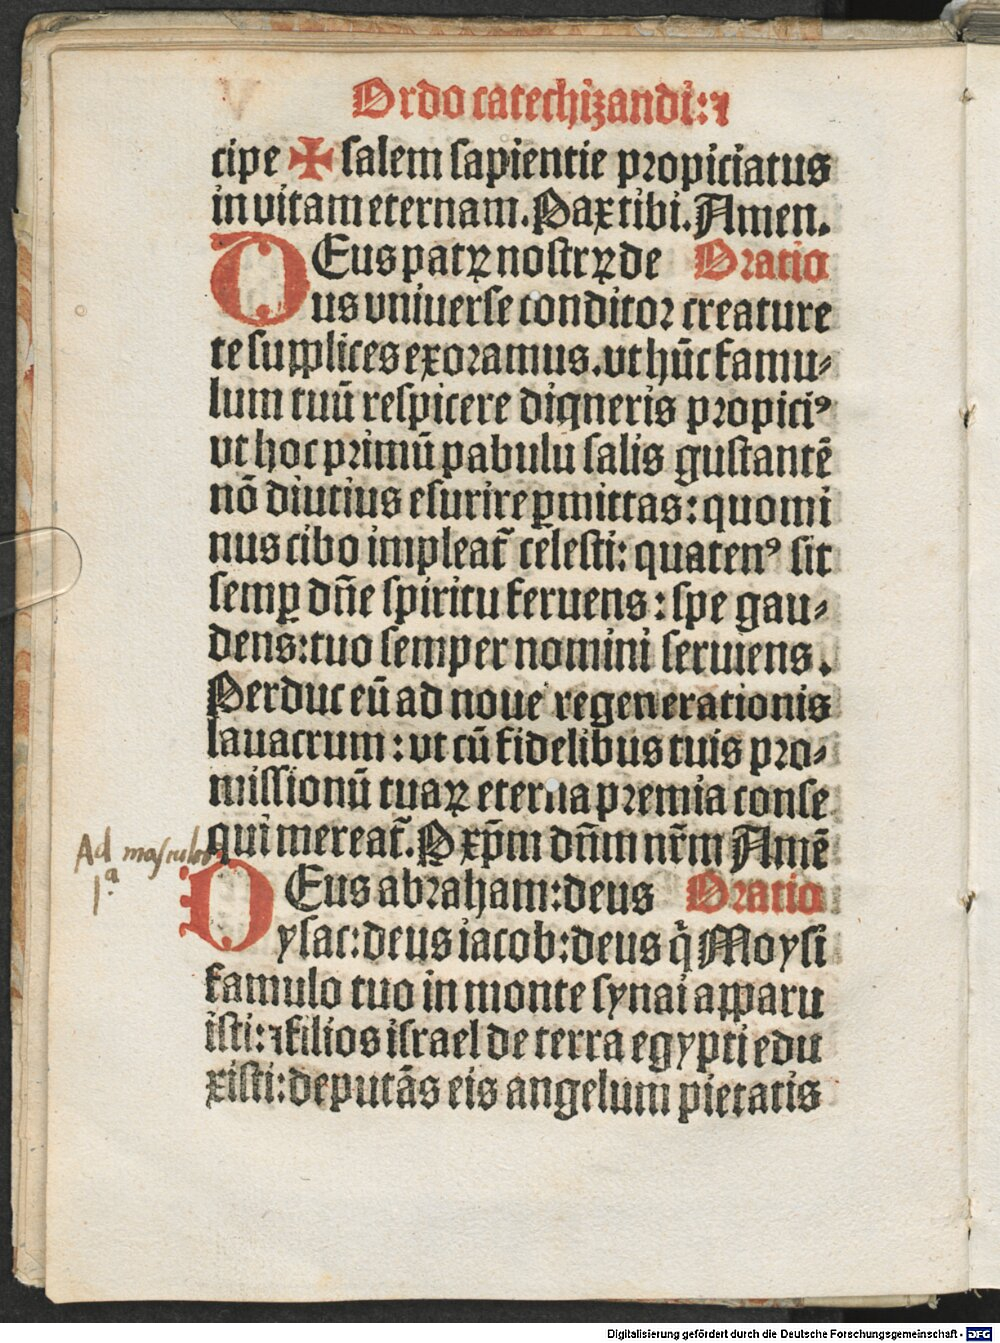 Ordo catechizandi: ⁊
cipe ✠ salem sapientie propiciatus
in vitam eternam. Pax tibi. Amen.
DEus patrꝝ nostrꝝ de Oratio
us vniuerse conditor creature
te supplices exoramus. vt hūc famu⸗
lum tuū respicere digneris propiciꝰ
vt hoc primū pabulu salis gustantē
nō diutius esurire ꝑmittas: quomi
nus cibo impleat᷑ celesti: quatenꝰ sit
semꝑ dn̄e spiritu feruens: spe gau⸗
dens: tuo semper nomini seruiens.
Perduc eū ad noue regenerationis
lauacrum: vt cū fidelibus tuis pro⸗
missionū tuaꝝ eterna premia conse
qui mereat᷑. P xp̄m dn̄m nr̄m Amē
Ad masculos
1ᵃ
DEus abraham: deus Oratio
ysac: deus iacob: deus q̇ Moysi
famulo tuo in monte synai apparu
isti: ⁊ filios israel de terra egypti edu
xisti: deputās eis angelum pietatis
Digitalisierung gefördert durch die Deutsche Forschungsgemeinschaft - DFG